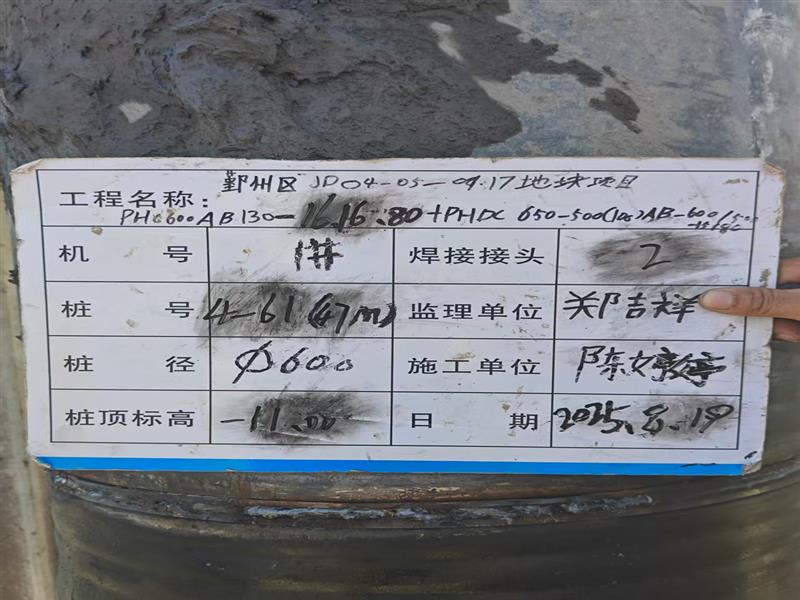 工程名称: 鄞州区JD04-05-09.17地块项目
PHC600AB130-16.16.80+PHDC 650-500(100)AB-600/500
-15/8C
机 号 1# 焊接接头 2
桩 号 4-61(47m) 监理单位 郑吉祥
桩 径 Φ600 施工单位 陈婷婷
桩顶标高 -11.00 日 期 2025.8.19